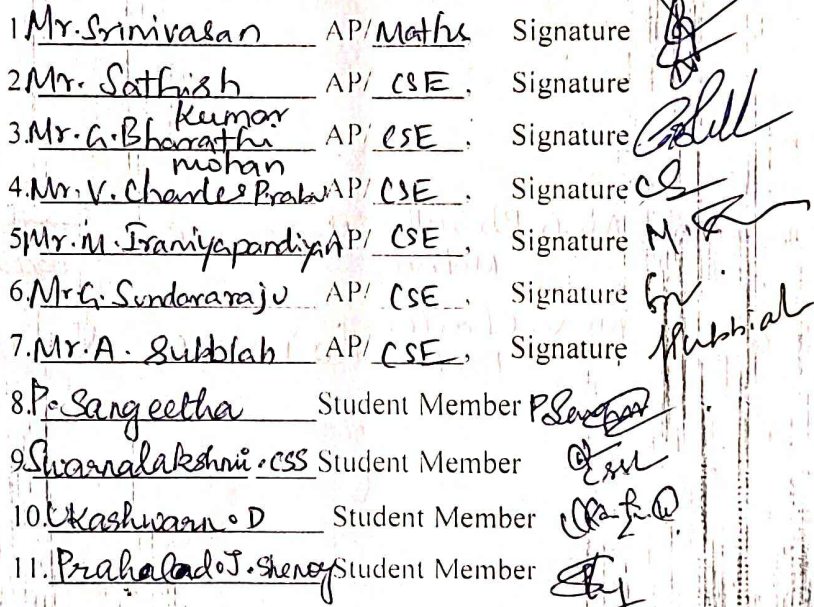 1 Mr. Srinivasan AP/ Maths Signature
2 Mr. Sathish Kumar AP/ CSE, Signature
3. Mr. G. Bharathi mohan AP/ CSE Signature
4. Mr. V. Charles Prabu AP/ CSE Signature
5 Mr. M. Iraniyapandiyan AP/ CSE Signature
6. Mr G. Sundararaju AP/ CSE, Signature
7. Mr. A. Subbiah AP/ CSE, Signature Subbiah
8. P. Sangeetha Student Member
9 Swarnalakshmi . CSS Student Member
10. Ukashwarn . D Student Member
11. Prahalad . J . Shenoy Student Member